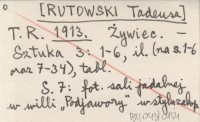 [RUTOWSKI Tadeusz]
T. R. 1913. Żywiec. –
Sztuka 3: 1-6, il. (na s. 1-6
oraz 7-34), tabl.
S. 7: fot. sali jadalnej
w willi „Podjawory" w